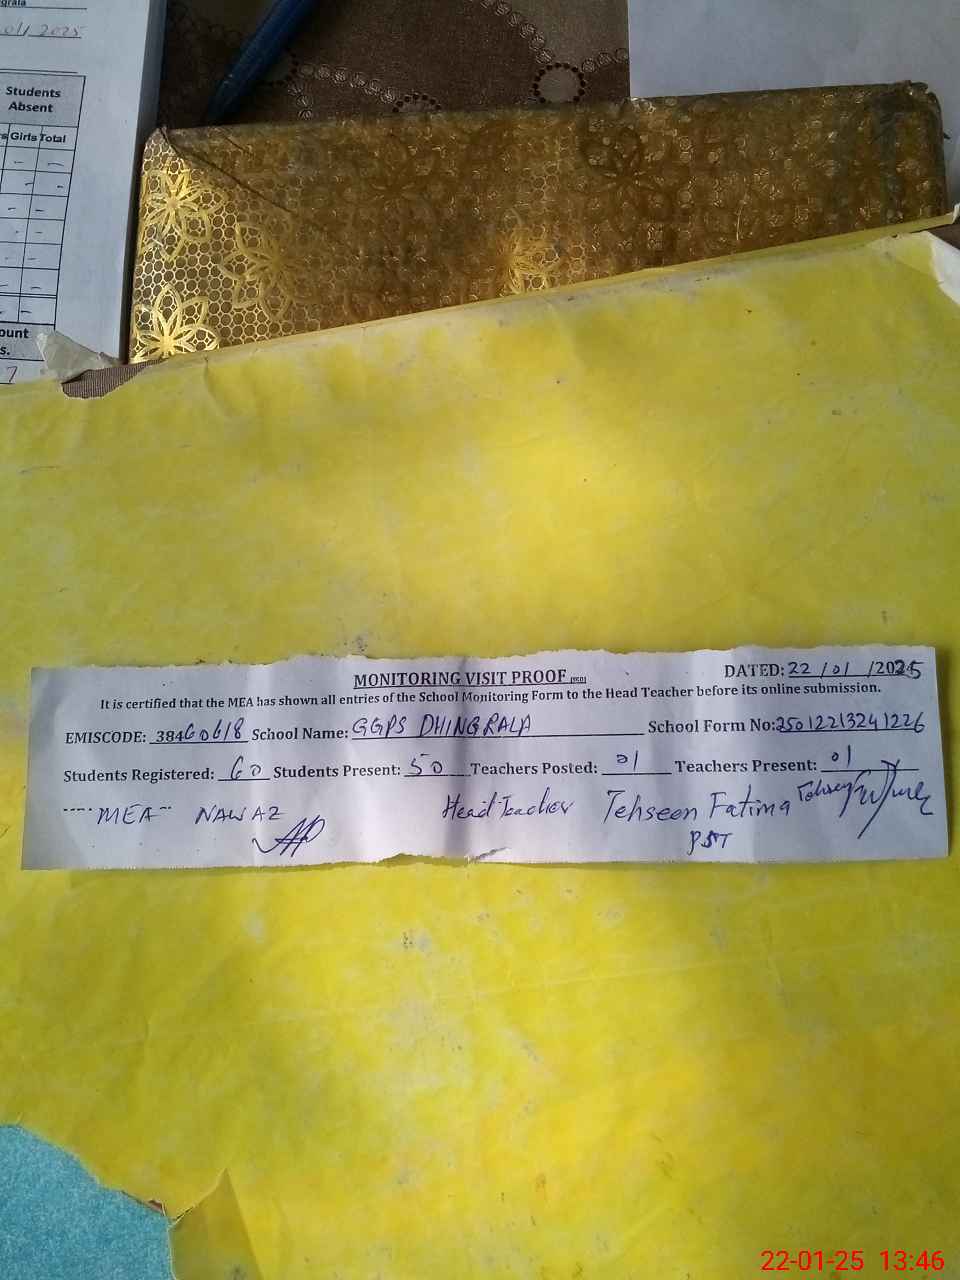 grala
01/2025
Students
Absent
s Girls Total
ount
s.
7
MONITORING VISIT PROOF
DATED: 22/01/2025
It is certified that the MEA has shown all entries of the School Monitoring Form to the Head Teacher before its online submission.
EMISCODE: 38460618 School Name: GGPS DHINGRALA School Form No: 25012213241226
Students Registered: 60 Students Present: 50 Teachers Posted: 01 Teachers Present: 01
MEA NAWAZ Head Teacher Tehseen Fatima
PST
22-01-25 13:46